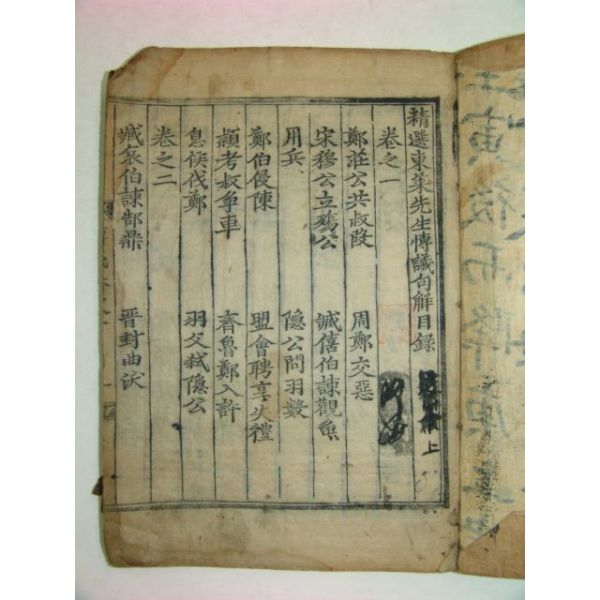 精選東萊先生傳議句解目錄
上
卷之一
鄭莊公共叔段 周鄭交惡
宋穆公立殤公 臧僖伯諫觀魚
用兵 隱公問羽數
鄭伯侵陳 盟會聘享失禮
頴考叔爭車 齊魯鄭入許
息侯伐鄭 羽父弑隱公
卷之二
臧哀伯諫郜鼎 晋封曲沃